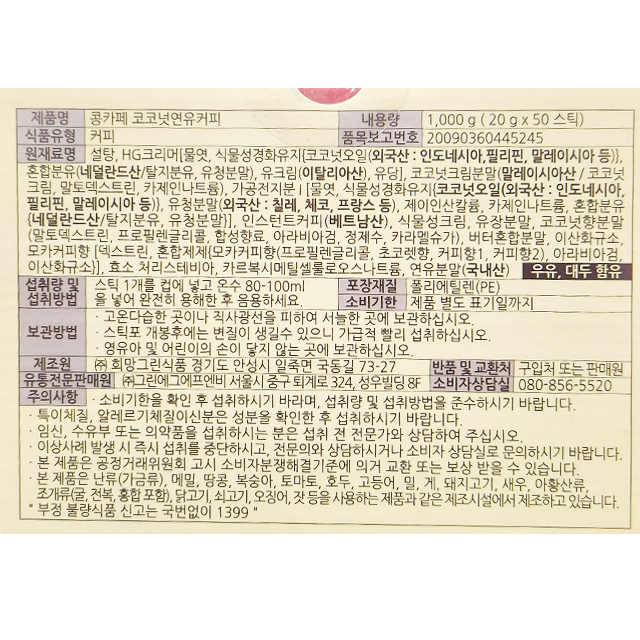 제품명 콩카페 코코넛연유커피 내용량 1,000 g ( 20 g x 50 스틱)
식품유형 커피 품목보고번호 20090360445245
원재료명 설탕, HG크리머[물엿, 식물성경화유지{코코넛오일(외국산 : 인도네시아,필리핀, 말레이시아 등)},
혼합분유(네덜란드산/탈지분유, 유청분말), 유크림(이탈리아산), 유당], 코코넛크림분말(말레이산 / 코코넛
크림, 말토덱스트린, 카제인나트륨), 가공전지분 I [물엿, 식물성경화유지{코코넛오일(외국산 : 인도네시아,
필리핀, 말레이시아 등)}, 유청분말(외국산 : 칠레, 체코, 프랑스 등), 제이인산칼륨, 카제인나트륨, 혼합분유
{네덜란드산/탈지분유, 유청분말}], 인스턴트커피(베트남산), 식물성크림, 유장분말, 코코넛향분말
(말토덱스트린, 프로필렌글리콜, 합성향료, 아라비아검, 정제수, 카라멜슈가), 버터혼합분말, 이산화규소,
모카커피향 [덱스트린, 혼합제제{모카커피향(프로필렌글리콜, 초코렛향, 커피향1, 커피향2), 아라비아검,
이산화규소}], 효소 처리스테비아, 카르복시메틸셀룰로오스나트륨, 연유분말(국내산) 우유, 대두 함유
섭취량 및 섭취방법 스틱 1개를 컵에 넣고 온수 80-100ml 포장재질 폴리에틸렌(PE)
을 넣어 완전히 용해한 후 음용하세요. 소비기한 제품 별도 표기일까지
· 고온다습한 곳이나 직사광선을 피하여 서늘한 곳에 보관하십시오.
보관방법 · 스틱포 개봉후에는 변질이 생길수 있으니 가급적 빨리 섭취하십시오.
· 영유아 및 어린이의 손이 닿지 않는 곳에 보관하십시오.
제조원 ㈜ 희망그린식품 경기도 안성시 일죽면 국동길 73-27 반품 및 교환처 구입처 또는 판매원
유통전문판매원 ㈜그린에그에프엔비 서울시 중구 퇴계로 324, 성우빌딩 8F 소비자상담실 080-856-5520
주의사항 · 소비기한을 확인 후 섭취하시기 바라며, 섭취량 및 섭취방법을 준수하시기 바랍니다.
· 특이체질, 알레르기체질이신분은 성분을 확인한 후 섭취하시기 바랍니다.
· 임신, 수유부 또는 의약품을 섭취하시는 분은 섭취 전 전문가와 상담하여 주십시오.
· 이상사례 발생 시 즉시 섭취를 중단하시고, 전문의와 상담하시거나 소비자 상담실로 문의하시기 바랍니다.
· 본 제품은 공정거래위원회 고시 소비자분쟁해결기준에 의거 교환 또는 보상 받을 수 있습니다.
· 본 제품은 난류(가금류), 메밀, 땅콩, 복숭아, 토마토, 호두, 고등어, 밀, 게, 돼지고기, 새우, 아황산류,
조개류(굴, 전복, 홍합 포함), 닭고기, 쇠고기, 오징어, 잣 등을 사용하는 제품과 같은 제조시설에서 제조하고 있습니다.
" 부정 불량식품 신고는 국번없이 1399 "